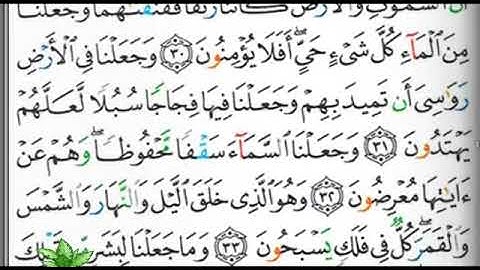 أَنَّ ٱلسَّمَٰوَٰتِ وَٱلْأَرْضَ كَانَتَا رَتْقًا فَفَتَقْنَٰهُمَا وَجَعَلْنَا
مِنَ ٱلْمَآءِ كُلَّ شَىْءٍ حَىٍّ ۖ أَفَلَا يُؤْمِنُونَ ٣٠ وَجَعَلْنَا فِى ٱلْأَرْضِ
رَوَٰسِىَ أَن تَمِيدَ بِهِمْ وَجَعَلْنَا فِيهَا فِجَاجًا سُبُلًا لَّعَلَّهُمْ
يَهْتَدُونَ ٣١ وَجَعَلْنَا ٱلسَّمَآءَ سَقْفًا مَّحْفُوظًا ۖ وَهُمْ عَنْ
ءَايَٰتِهَا مُعْرِضُونَ ٣٢ وَهُوَ ٱلَّذِى خَلَقَ ٱلَّيْلَ وَٱلنَّهَارَ وَٱلشَّمْسَ
وَٱلْقَمَرَ ۖ كُلٌّ فِى فَلَكٍ يَسْبَحُونَ ٣٣ وَمَا جَعَلْنَا لِبَشَرٍ مِّن قَبْلِكَ